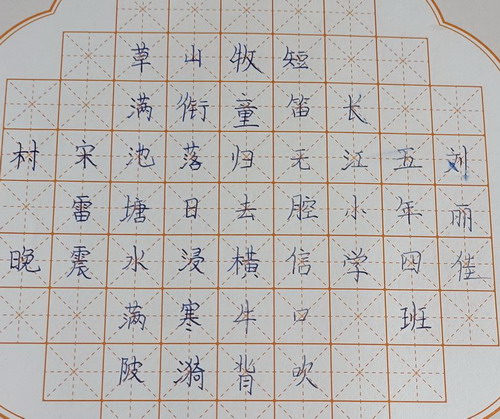 村晚
宋雷震
草满池塘水满陂
山衔落日浸寒漪
牧童归去横牛背
短笛无腔信口吹
长江小学
五年四班
刘丽佳